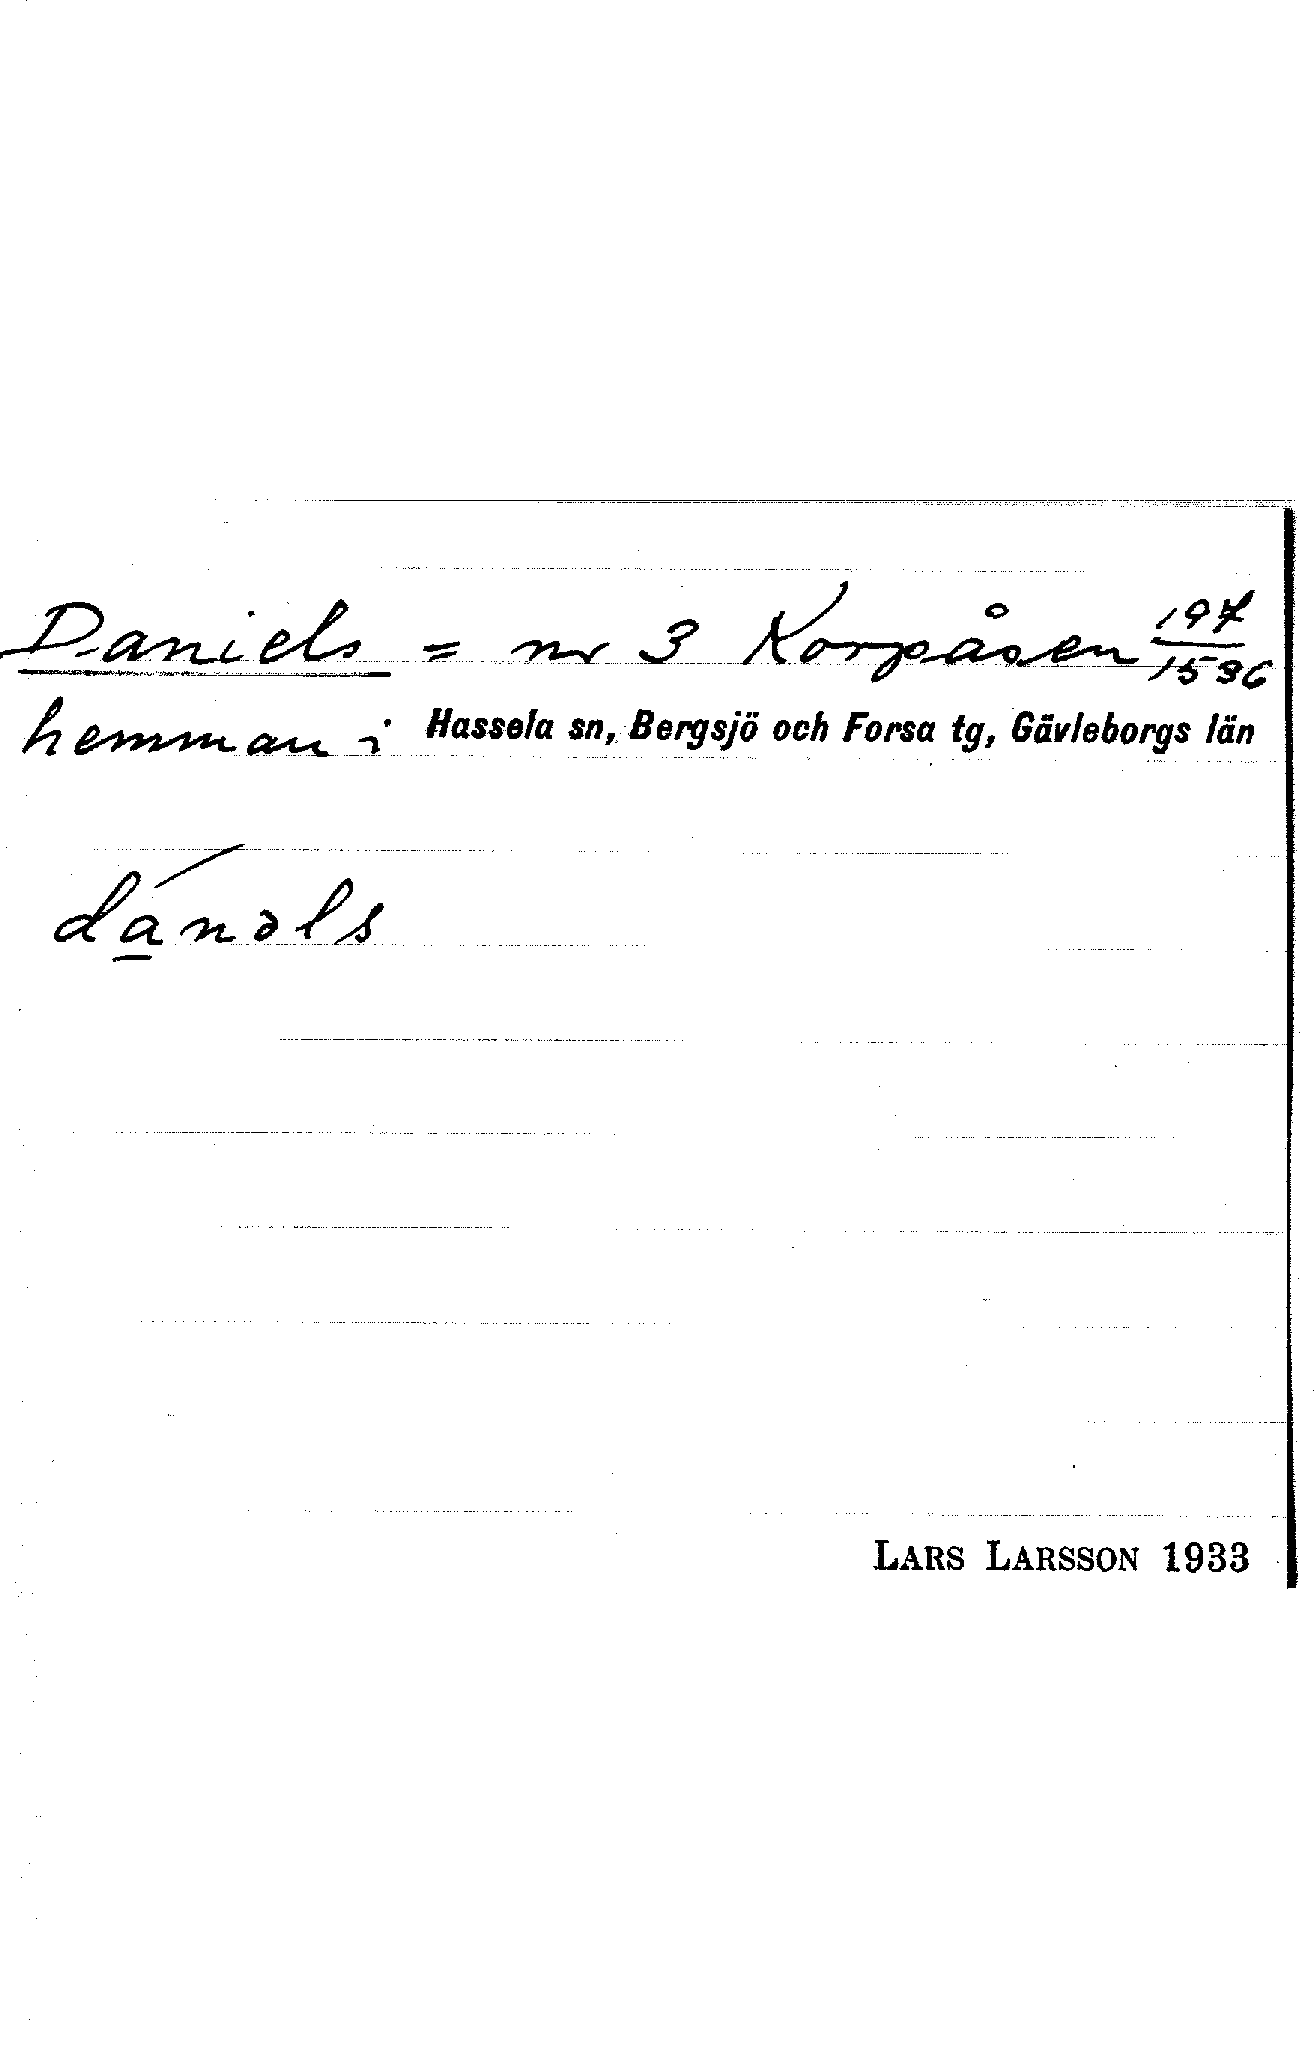 Daniels = nr 3 Korpåsen 197/1536
hemman i Hassela sn, Bergsjö och Forsa tg, Gävleborgs län
dá̱nəls
LARS LARSSON 1933